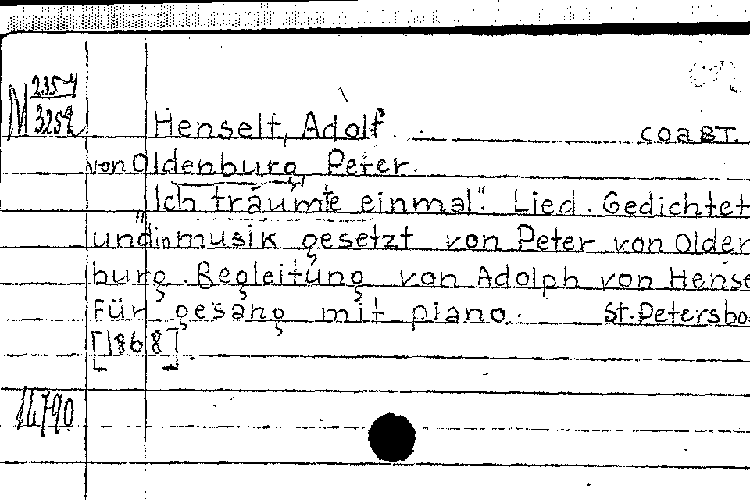 M 235-4
3252
Henselt, Adolf coавт.
von Oldenburg Peter.
"Ich träumte einmal". Lied. Gedichtet
und in musik gesetzt von Peter von Olden
burg. Begleitung von Adolph von Hense
Für gesang mit piano. St.Petersbo
[1868]
14790